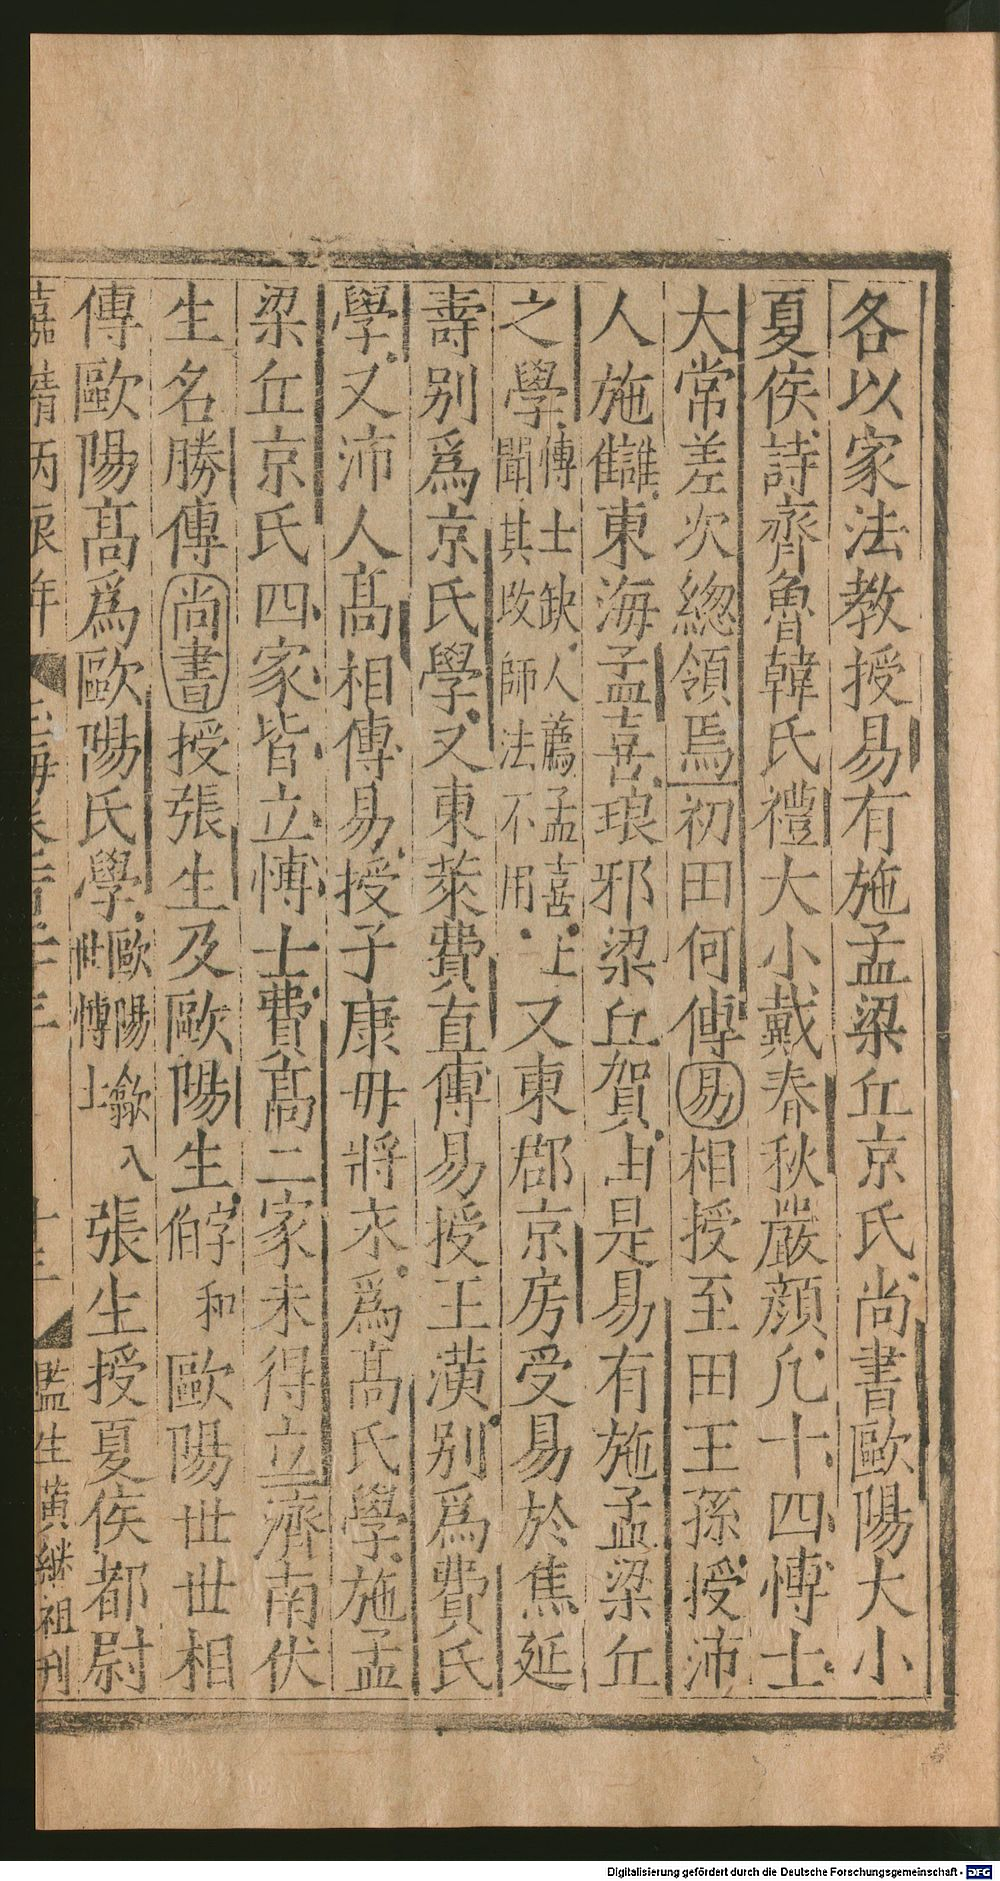 各以家法教授易有施孟梁丘京氏尚書歐陽大小
夏侯詩齊魯韓氏禮大小戴春秋嚴顔凡十四博士
大常差次緫領焉初田何傳易相授至田王孫授沛
人施讎東海孟喜琅邪梁丘賀由是易有施孟梁丘
之學傳士缺人薦孟喜上聞其改師法不用又東郡京房受易於焦延
壽别爲京氏學又東萊費直傳易授王潢别爲費氏
學又沛人髙相傳易授子康毋將永爲髙氏學施孟
梁丘京氏四家皆立博士費髙二家未得立濟南伏
生名勝傳尚書授張生及歐陽生字和伯歐陽丗丗相
傳歐陽髙爲歐陽氏學歐陽歙八丗博士張生授夏侯都尉
嘉靖丙辰年 玉海卷 十三 監生黄継祖刊
Digitalisierung gefördert durch die Deutsche Forschungsgemeinschaft - DFG